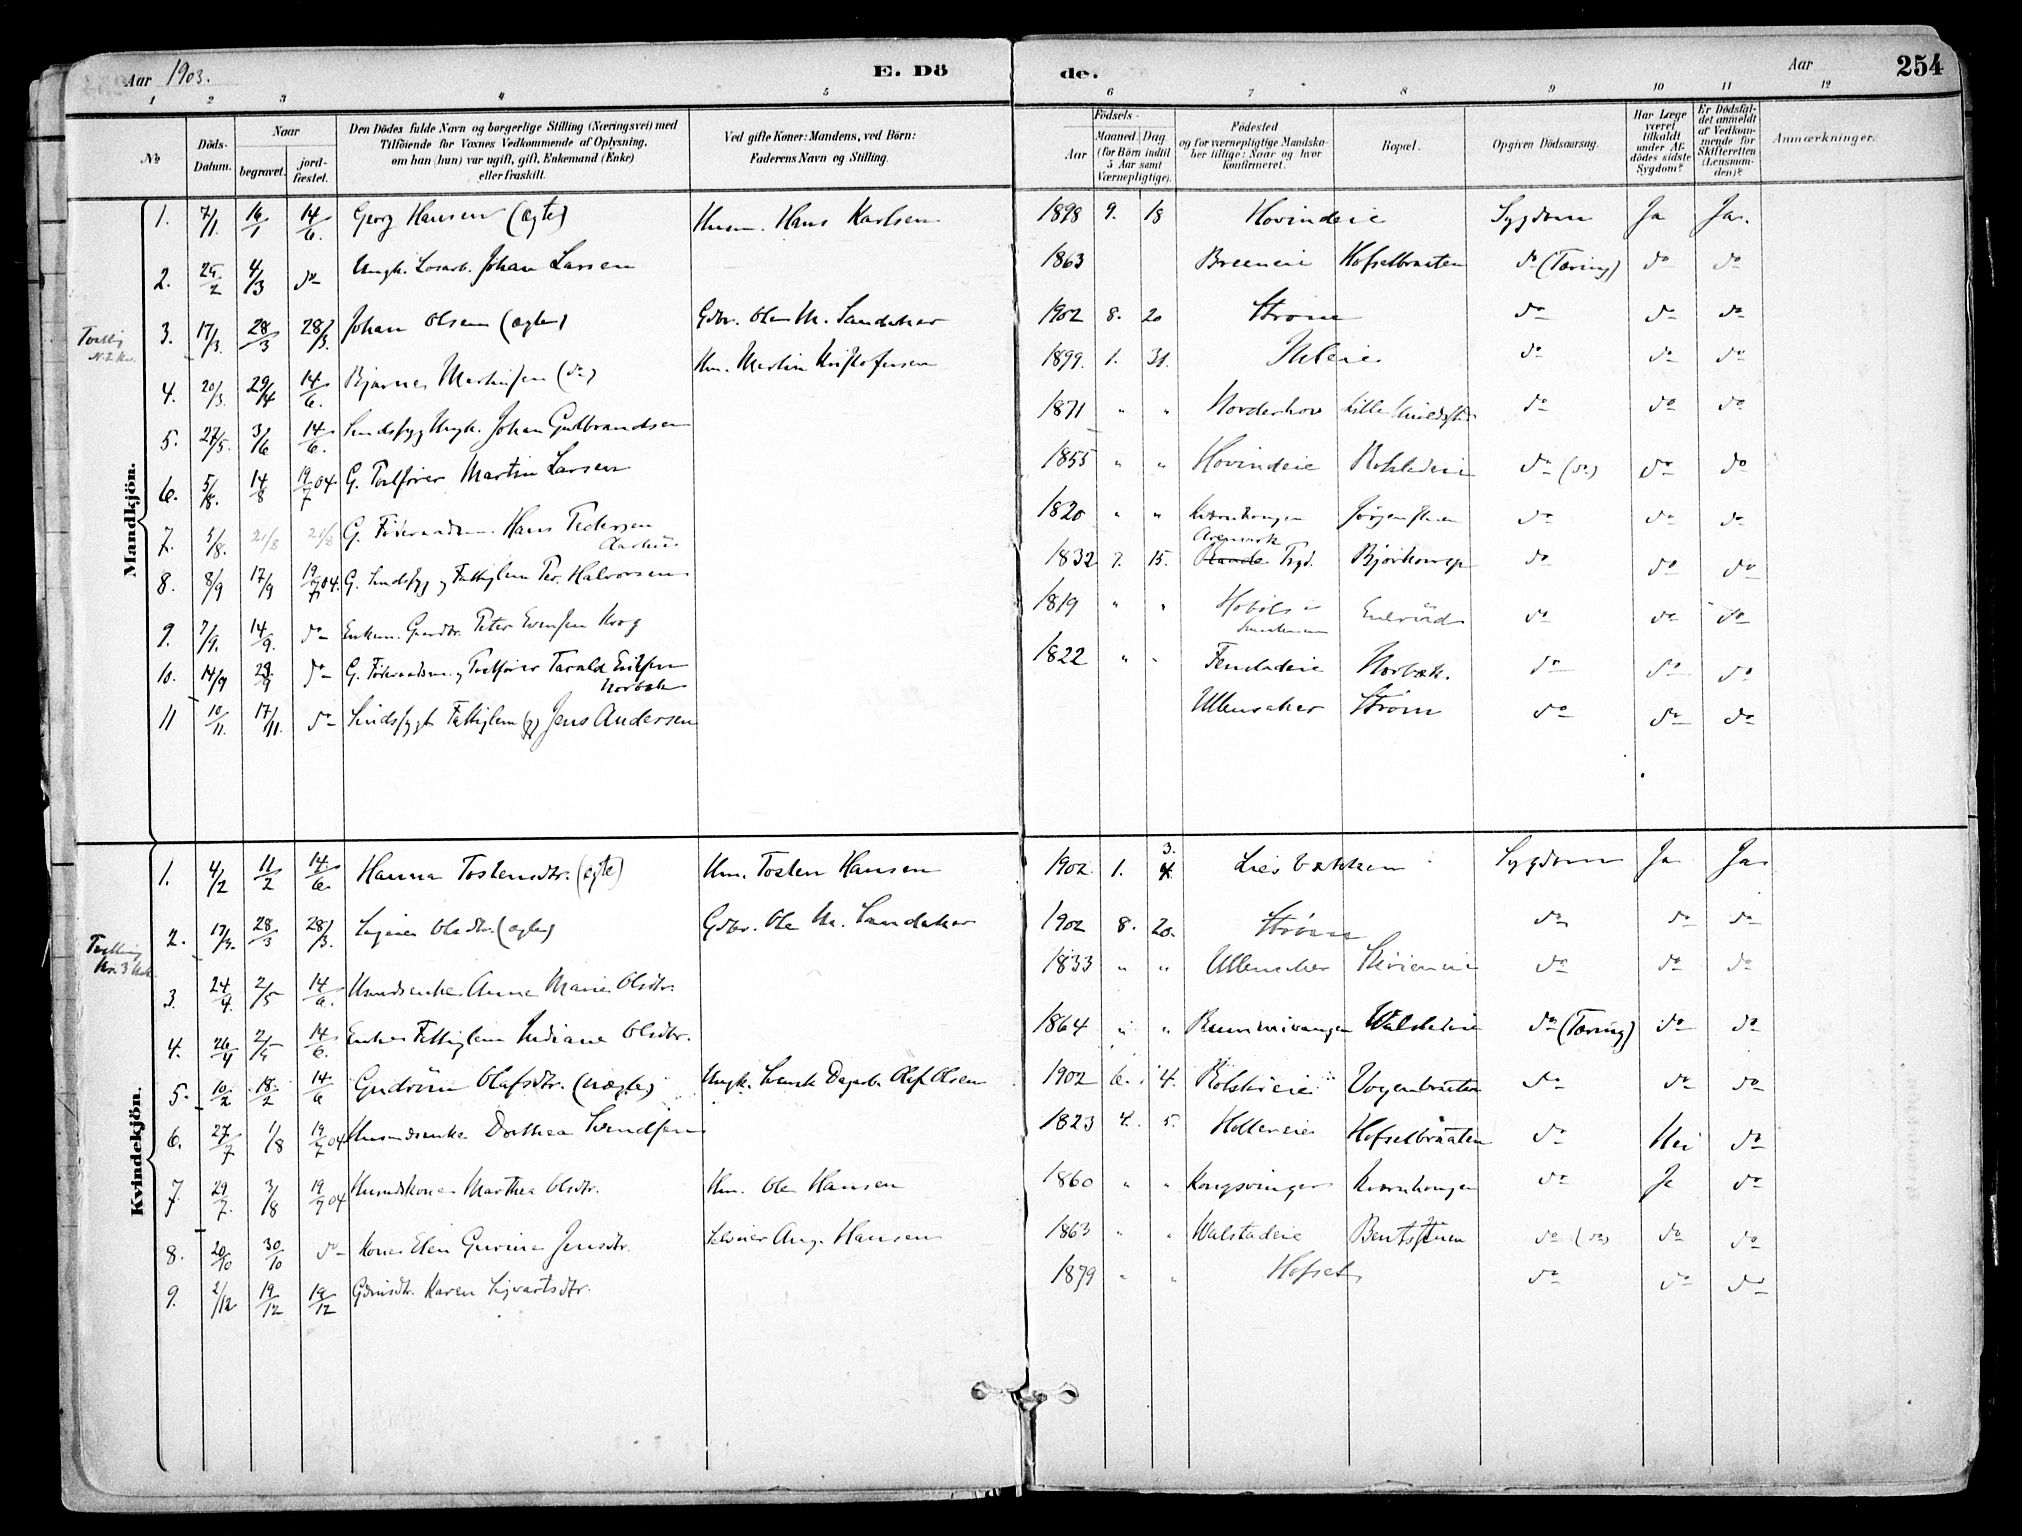 Aar 1903. E. Dö de. Aar 254
1 2 3 4 5 6 7 8 9 10 11 12
No Döds-Datum. Naar begravet. jordfæstet. Den Dödes fulde Navn og borgerlige Stilling (Næringsvei) med Tilföiende for Voxnes Vedkommende af Oplysning, om han (hun) var ugift, gift, Enkemand (Enke) eller fraskilt. Ved gifte Koner: Mandens, ved Börn: Faderens Navn og Stilling. Födsels- Aar Maaned Dag (for Börn indtil 5 Aar samt Værnepligtige). Födested og for værnepligtige Mandskaber tillige: Naar og hvor konfirmeret. Bopæl. Opgiven Dödsaarsag. Har Læge været tilkaldt under Afdödes sidste Sygdom? Er Dödsfaldet anmeldt af Vedkommende for Skifteretten (Lensmanden)? Anmærkninger.
Mandkjön.
1. 7/1. 16/1 14/6. Georg Hansen (ægte) Husm. Hans Karlsen 1898 9. 18 Hovindeie Sygdom Ja Ja.
2. 25/2 4/3 do Ungk. Losarb. Johan Larsen 1863 Breeneie Hofselbraaten do (Tæring) do do
Tvilling
3. 17/3. 28/3 28/3. Johan Olsen (ægte) Gdbr. Ole M. Sandaker 1902 8. 20 Strøm do do do
4. 20/3. 29/4 14/6. Bjarne Martinsen (do) Hm. Martin Kristofersen 1899. 1. 31. do do do
5. 27/5. 3/6 14/6. Sindssyg Ungk. Johan Gulbrandsen 1871 " " Norderhov Lille do do do
6. 5/8. 14/8 19/7 04 G. Postfører Martin Larsen 1855 " " Hovindeie do (do) do do
7. 5/8. 21/8 21/8 G. Føderaadsm. Hans Pedersen 1820 " " Kværnhougen do do do
8. 8/9 17/9 19/7 04. G. Sindssyg Fattiglem Per. Halvorsen 1832 7. 15. Aremark Trgd. do do do
9. 7/9. 14/9. do Enkem. Gaardbr. Peter Evensen Krog 1819 " " Hobøl do do do
10. 14/9 23/9 do G. Føderaadsm. Postfører Tarald Eriksen Norbæk 1822 " " Norbæk. do do do
11 10/11. 17/11. do Sindssygt Fattiglem (g) Jens Andersen Ullensaker Strøm do do do
Kvindekjön.
1. 4/2 11/2 14/6. Hanna Tostensdtr. (ægte) Hm. Tosten Hansen 1902. 1. 3. 4. Liesbakken Sygdom Ja Ja
Tvilling
2. 17/3. 28/3 28/3. Signe Olsdtr. (ægte) Gdbr. Ole M. Sandaker 1902 8. 20. Strøm do do do
3. 24/4. 2/5 14/6. Husmdsenke Anne Marie Olsdtr. 1833 " " Ullensaker do do do
4. 26/4 2/5 14/6. Enke Fattiglem Indiane Olsdtr. 1864 " " Walstadeie do (Tæring) do do
5. 10/2 18/2 14/6 Gudrun Olafsdtr. (uægte) Ungk. Svensk Dagarb. Olaf Olsen 1902 6. 4. do do do
6. 27/7 1/8 19/7 04 Husmdsenke Dorthea Svendsen 1823 4. 5. Holtereie Hofselbraaten do Nei do
7. 29/7. 3/8 19/7 04 Husmdskone Marthea Olsdtr. Hm. Ole Hansen 1860 " " Kongsvinger Kværnhougen do Ja do
8. 20/10 30/10 do Kone Elen Gurine Jensdtr. Selveier Aug. Hansen 1863 " " Walstadeie Bentstuen do (do) do do
9. 2/12 19/12 19/12 Karen Sigvartsdtr. 1879 " " Hofset do do do